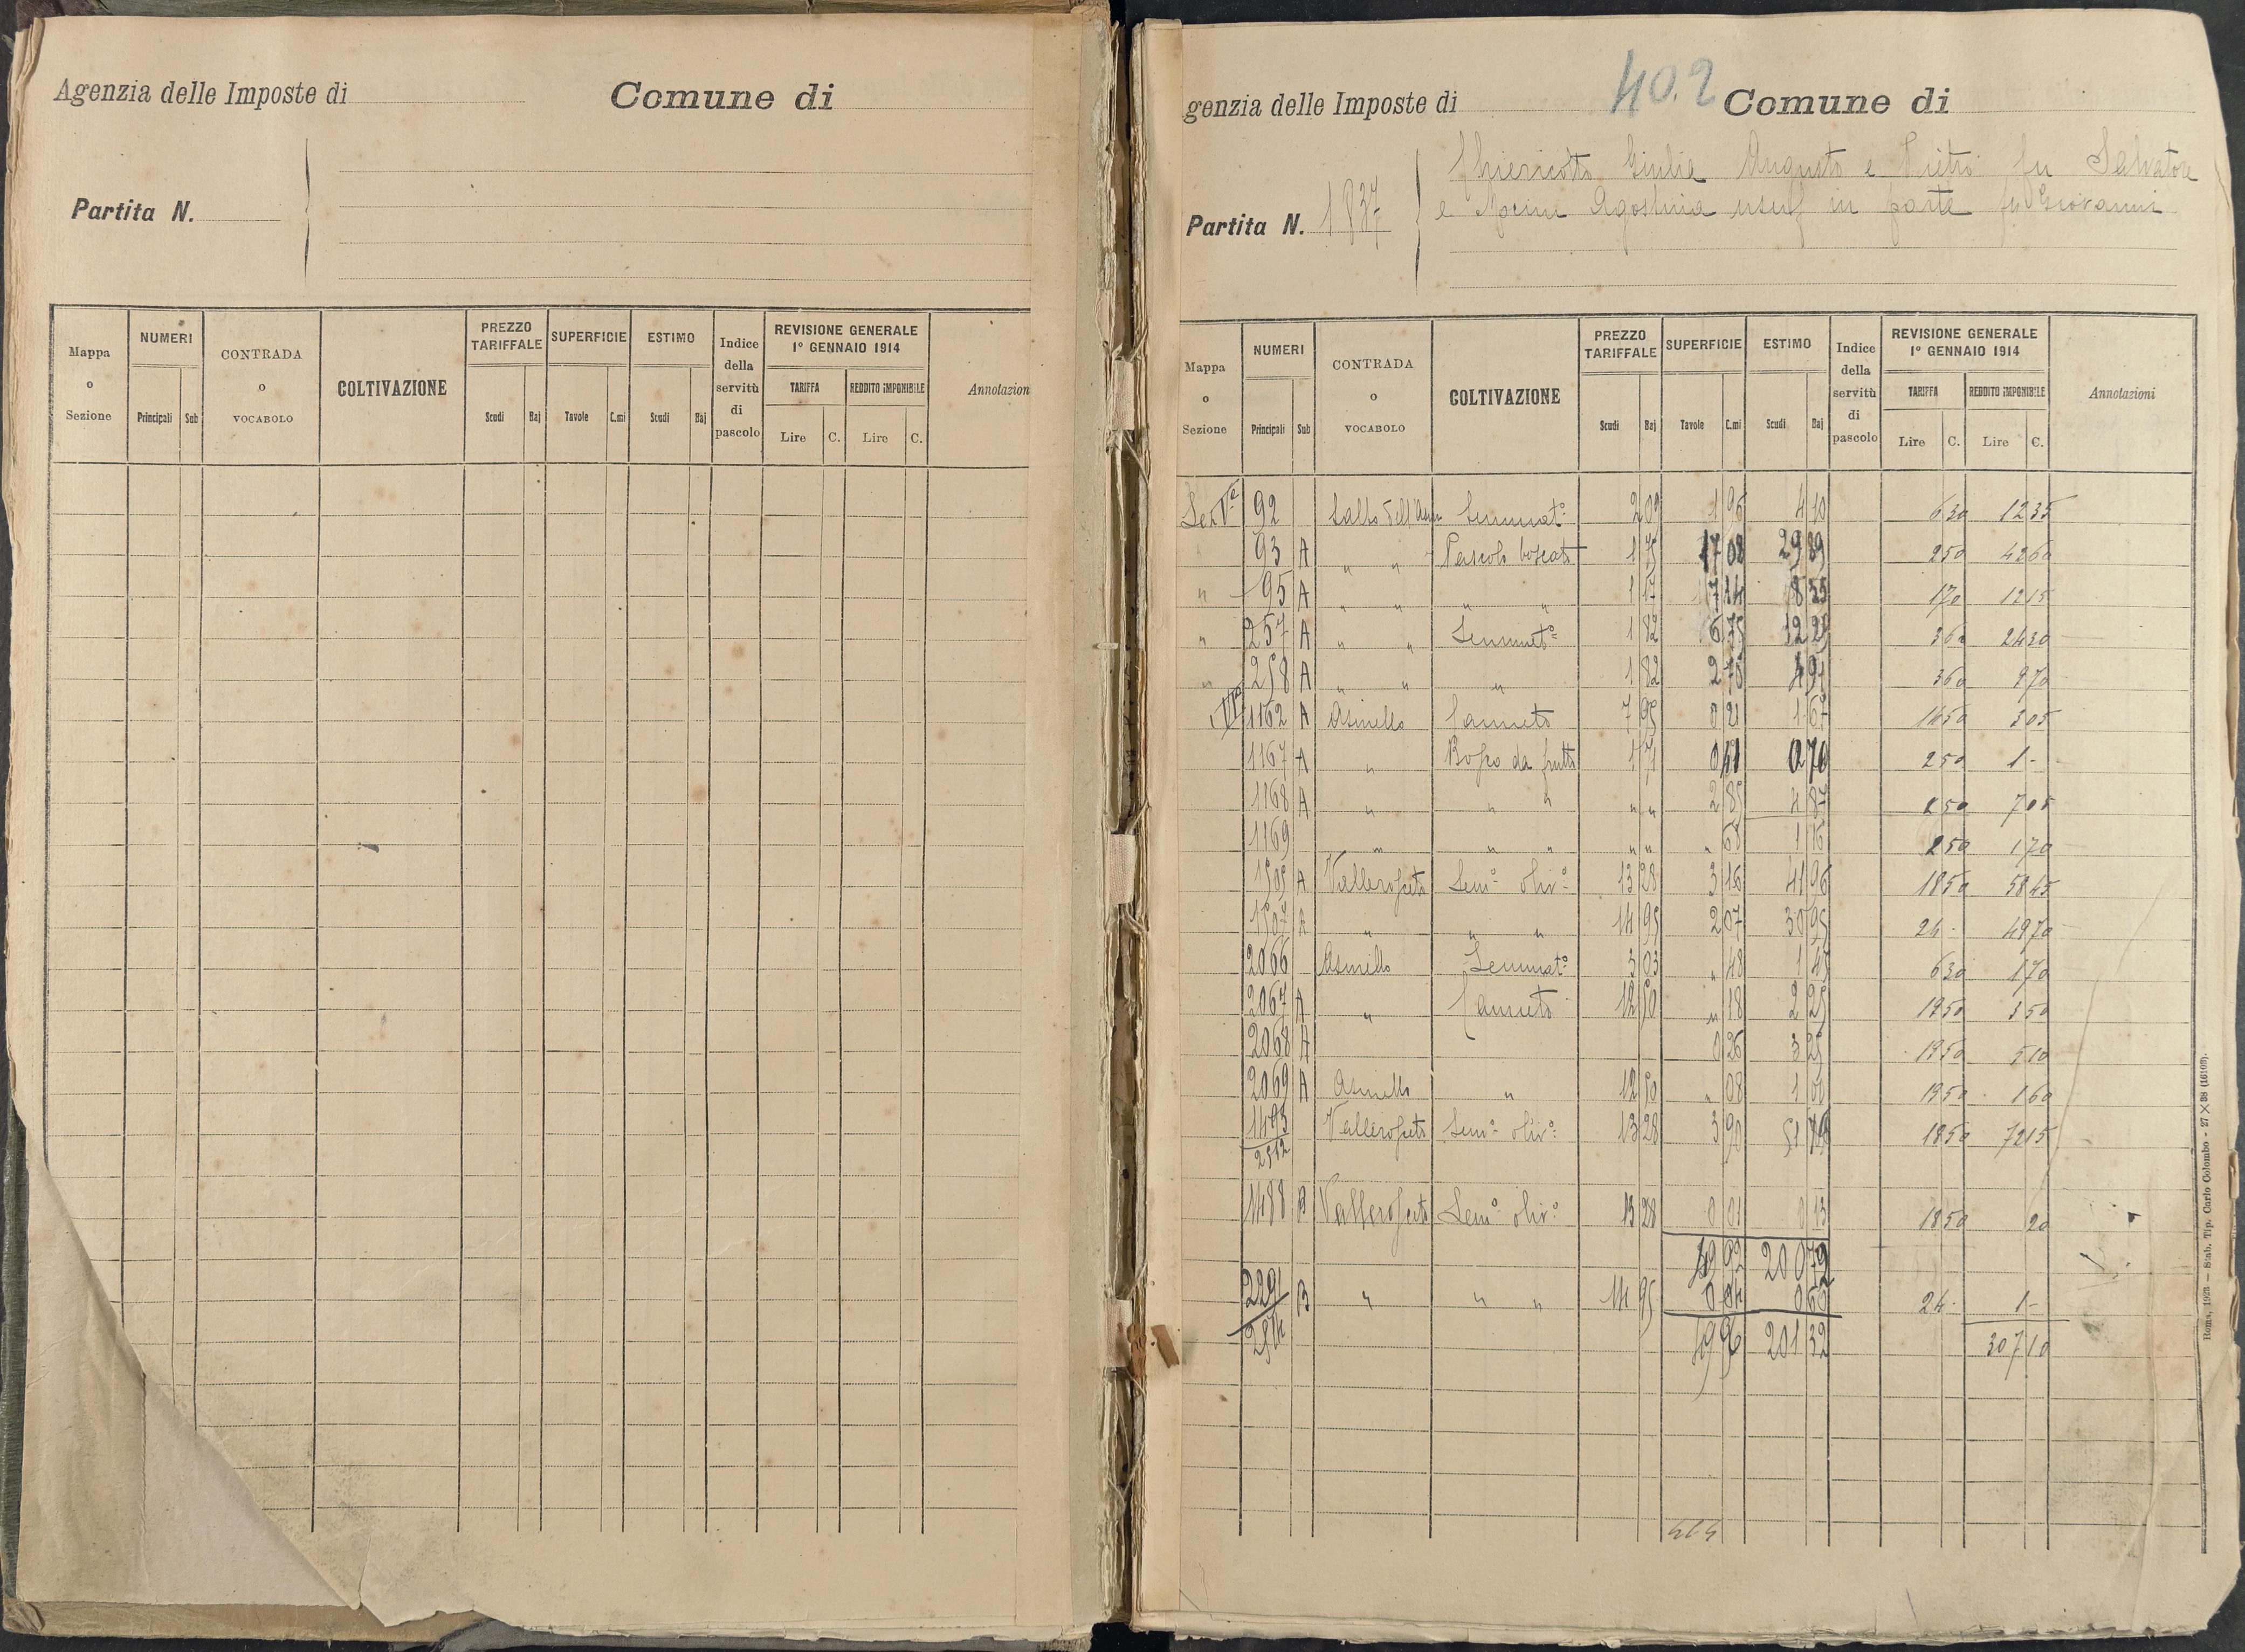 Agenzia delle Imposte di Comune di
Partita N.
Mappa o Sezione
NUMERI
Principali Sub
CONTRADA o VOCABOLO
COLTIVAZIONE
PREZZO TARIFFALE
Scudi Baj
SUPERFICIE
Tavole C.mi
ESTIMO
Scudi Baj
Indice della servitù di pascolo
REVISIONE GENERALE
1° GENNAIO 1914
TARIFFA REDDITO IMPONIBILE
Lire C. Lire C.
Annotazion
402
genzia delle Imposte di Comune di
Giulia Augusto e Pietro fu Salvatore
Partita N. 1837
e Agostina usuf in parte fu Giovanni
Mappa o Sezione
NUMERI
Principali Sub
CONTRADA o VOCABOLO
COLTIVAZIONE
PREZZO TARIFFALE
Scudi Baj
SUPERFICIE
Tavole C.mi
ESTIMO
Scudi Baj
Indice della servitù di pascolo
REVISIONE GENERALE
1° GENNAIO 1914
TARIFFA REDDITO IMPONIBILE
Lire C. Lire C.
Annotazioni
Sez Vª 92 Salto Seminatº 2 09 1 96 4 10 6 30 12 35
93 A " " Pascolo boscato 1 75 17 08 29 89 2 50 42 60
" 95 A " " " " 1 17 7 14 8 35 1 70 12 15
" 257 A " " Seminatº 1 82 6 75 12 29 3 60 24 30
" 258 A " " " 1 82 2 70 4 91 3 60 9 70
VIª 1162 A Asinello Canneto 7 95 0 21 1 67 14 50 3 05
1167 A " Bosco da frutto 1 71 0 41 0 70 2 50 1 -
1168 A " " " " " 2 85 4 87 2 50 7 05
1169 " " " " " " 68 1 16 2 50 1 70
1505 A Vallerosceto Semº olivº 13 28 3 16 41 96 18 50 58 45
1507 A " " " 14 95 2 07 30 95 24 - 49 70
2066 Asinello Seminatº 3 03 " 48 1 45 6 30 1 70
2067 A " Canneto 12 50 " 18 2 25 19 50 3 50
2068 A 0 26 3 25 19 50 5 10
2069 A Asinello " 12 50 " 08 1 00 19 50 1 60
1493 Vallerosceto Semº olivº 13 28 3 90 51 79 18 50 72 15
2512
1488 B Vallerosceto Semº olivº 13 28 0 01 0 13 18 50 20
49 92 200 72
2291 B " " " 14 95 0 04 0 60 24 - 1 -
2514 49 96 201 32 307 10
Roma, 1923 — Stab. Tip. Carlo Colombo - 27 × 38 (16109).